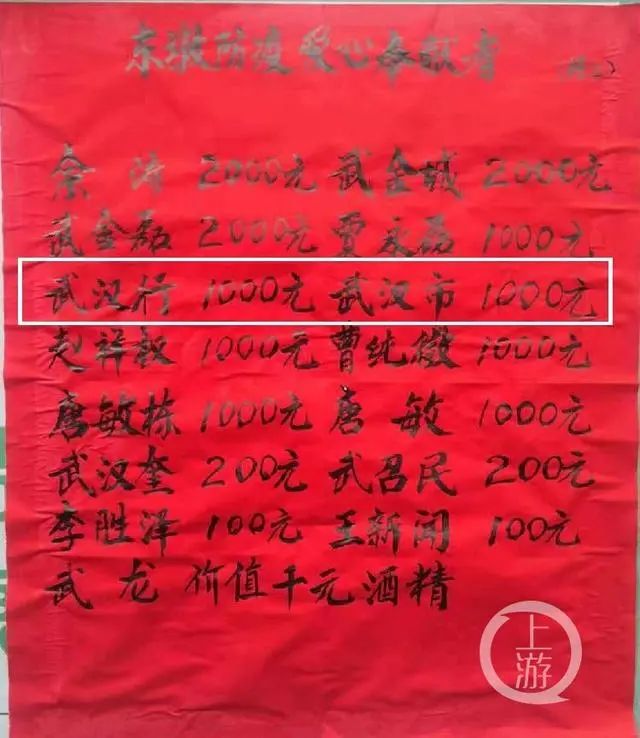 东墩防疫爱心奉献者
余涛 2000元 武金城 2000元
武金磊 2000元 贾永磊 1000元
武汉行 1000元 武汉市 1000元
赵祥叙 1000元 曹纯傲 1000元
唐敏栋 1000元 唐敏 1000元
武汉奎 200元 武召民 200元
李胜泽 100元 王新闻 100元
武龙 价值千元酒精
上游